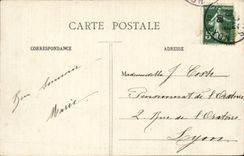 CARTE POSTALE
CORRESPONDANCE
ADRESSE
Bon Souvenir
Marie
Mademoiselle J. Coste
Pensionnat de l'Oratoire
2 Rue de l'Oratoire
Lyon